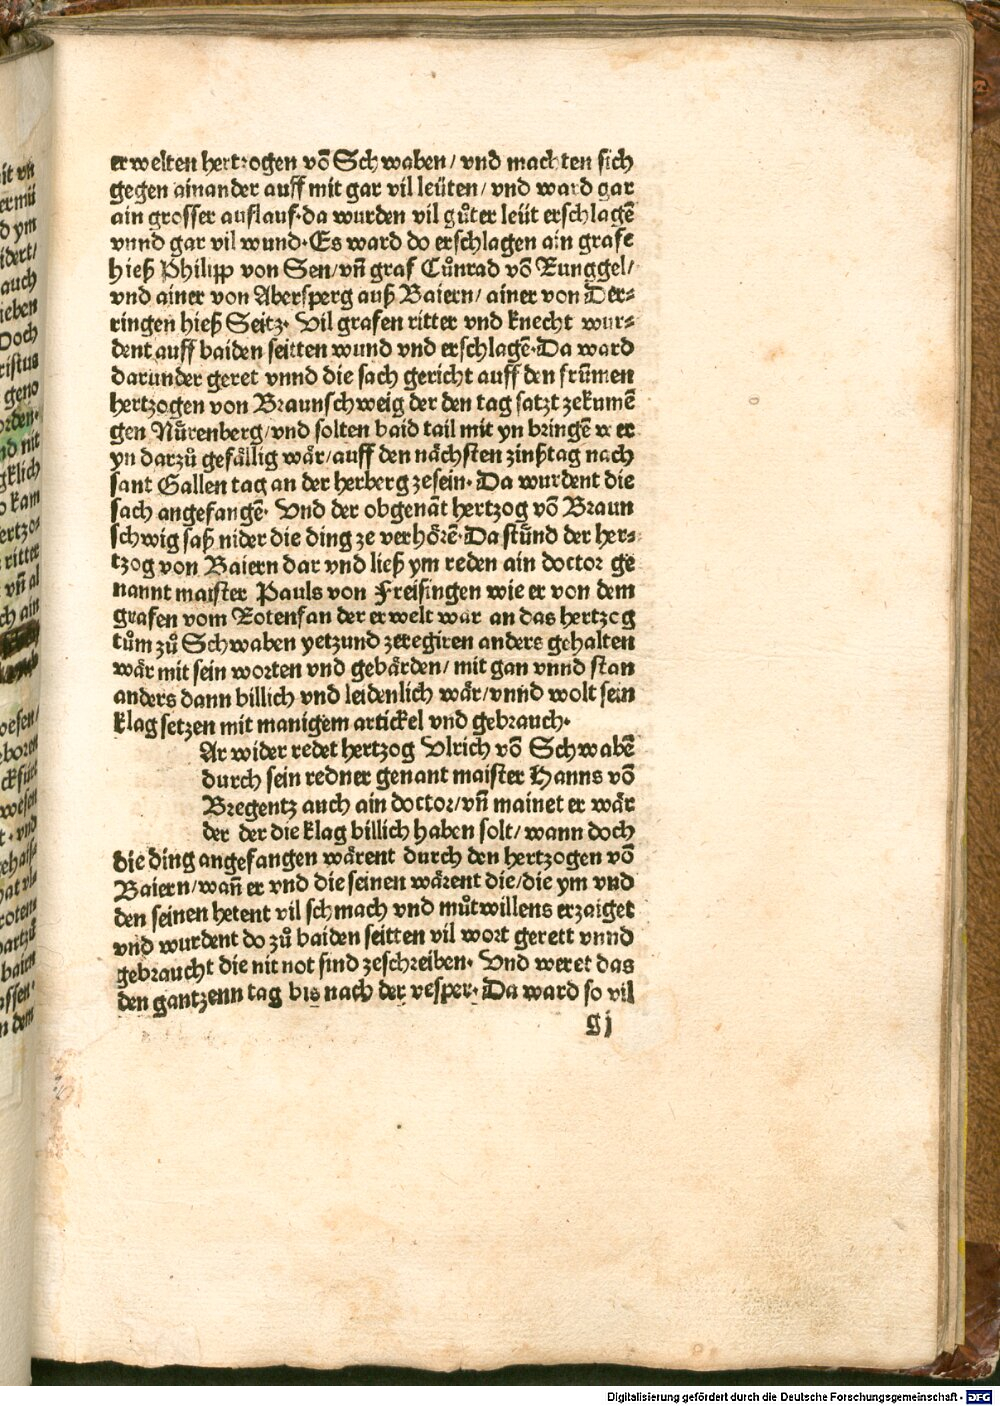 erwelten hertzogen võ Schwaben/ vnd machten sich
gegen ainander auff mit gar vil leüten/ vnd ward gar
ain grosser auflauf·da wurden vil gůter leüt erschlagẽ
vnnd gar vil wund·Es ward do erschlagen ain grafe
hieß Philipp von Sen/vñ graf Cůnrad võ Tunggel/
vnd ainer von Abersperg auß Baiern/ ainer von Der⸗
ringen hieß Seitz· Vil grafen ritter vnd knecht wur⸗
dent auff baiden seitten wund vnd erschlagẽ·Da ward
darunder geret vnnd die sach gericht auff den frũmen
hertzogen von Braunschweig der den tag satzt zekumẽ
gen Nürenberg/vnd solten baid tail mit yn bringẽ wer
yn darzů gefällig wär/auff den nächsten zinßtag nach
sant Gallen tag an der herberg zesein· Da wurdent die
sach angefangẽ· Vnd der obgenãt hertzog võ Braun
schwig saß nider die ding ze verhörẽ·Da stůnd der her⸗
tzog von Baiern dar vnd ließ ym reden ain doctor ge
nannt maister Pauls von Freisingen wie er von dem
grafen vom Rotenfan der erwelt war an das hertzog
tům zů Schwaben yetzund zeregiren anders gehalten
wär mit sein worten vnd gebärden/ mit gan vnnd stan
anders dann billich vnd leidenlich wär/vnnd wolt sein
klag setzen mit manigem artickel vnd gebrauch·
Ar wider redet hertzog Vlrich võ Schwabẽ
durch sein redner genant maister Hanns võ
Bregentz auch ain doctor/vñ mainet er wär
der der die klag billich haben solt/ wann doch
die ding angefangen wärent durch den hertzogen võ
Baiern/wañ er vnd die seinen wärent die/die ym vnd
den seinen hetent vil schmach vnd můtwillens erzaiget
vnd wurdent do zů baiden seitten vil wort gerett vnnd
gebraucht die nit not sind zeschreiben· Vnd weret das
den gantzenn tag bis nach der vesper· Da ward so vil
gj
Digitalisierung gefördert durch die Deutsche Forschungsgemeinschaft - DFG